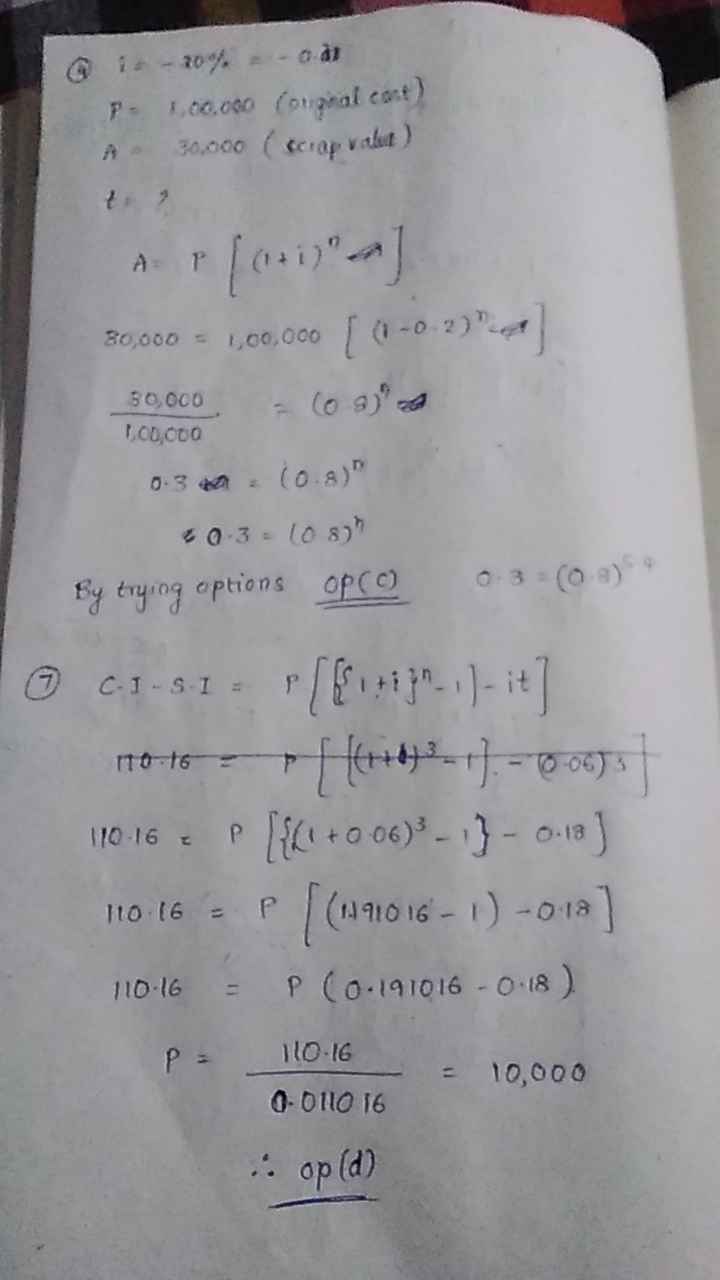 ⑨ i = -20% = -0.2
P = 1,00,000 (original cost)
A = 30,000 (scrap value)
t = ?
A = P [(1+i)ⁿ]
30,000 = 1,00,000 [(1-0.2)ⁿ]
30,000 / 1,00,000 = (0.8)ⁿ
0.3 = (0.8)ⁿ
0.3 = (0.8)ⁿ
By trying options op(c) 0.3 = (0.8)⁵·⁴
⑦ C.I - S.I = P[[{1+i}ⁿ-1]-it]
110.16 = P [[(1+i)³-1] - (0.06)3]
110.16 = P [{(1+0.06)³-1} - 0.18]
110.16 = P [(1.191016-1) - 0.18]
110.16 = P (0.191016 - 0.18)
P = 110.16 / 0.011016 = 10,000
∴ op(d)